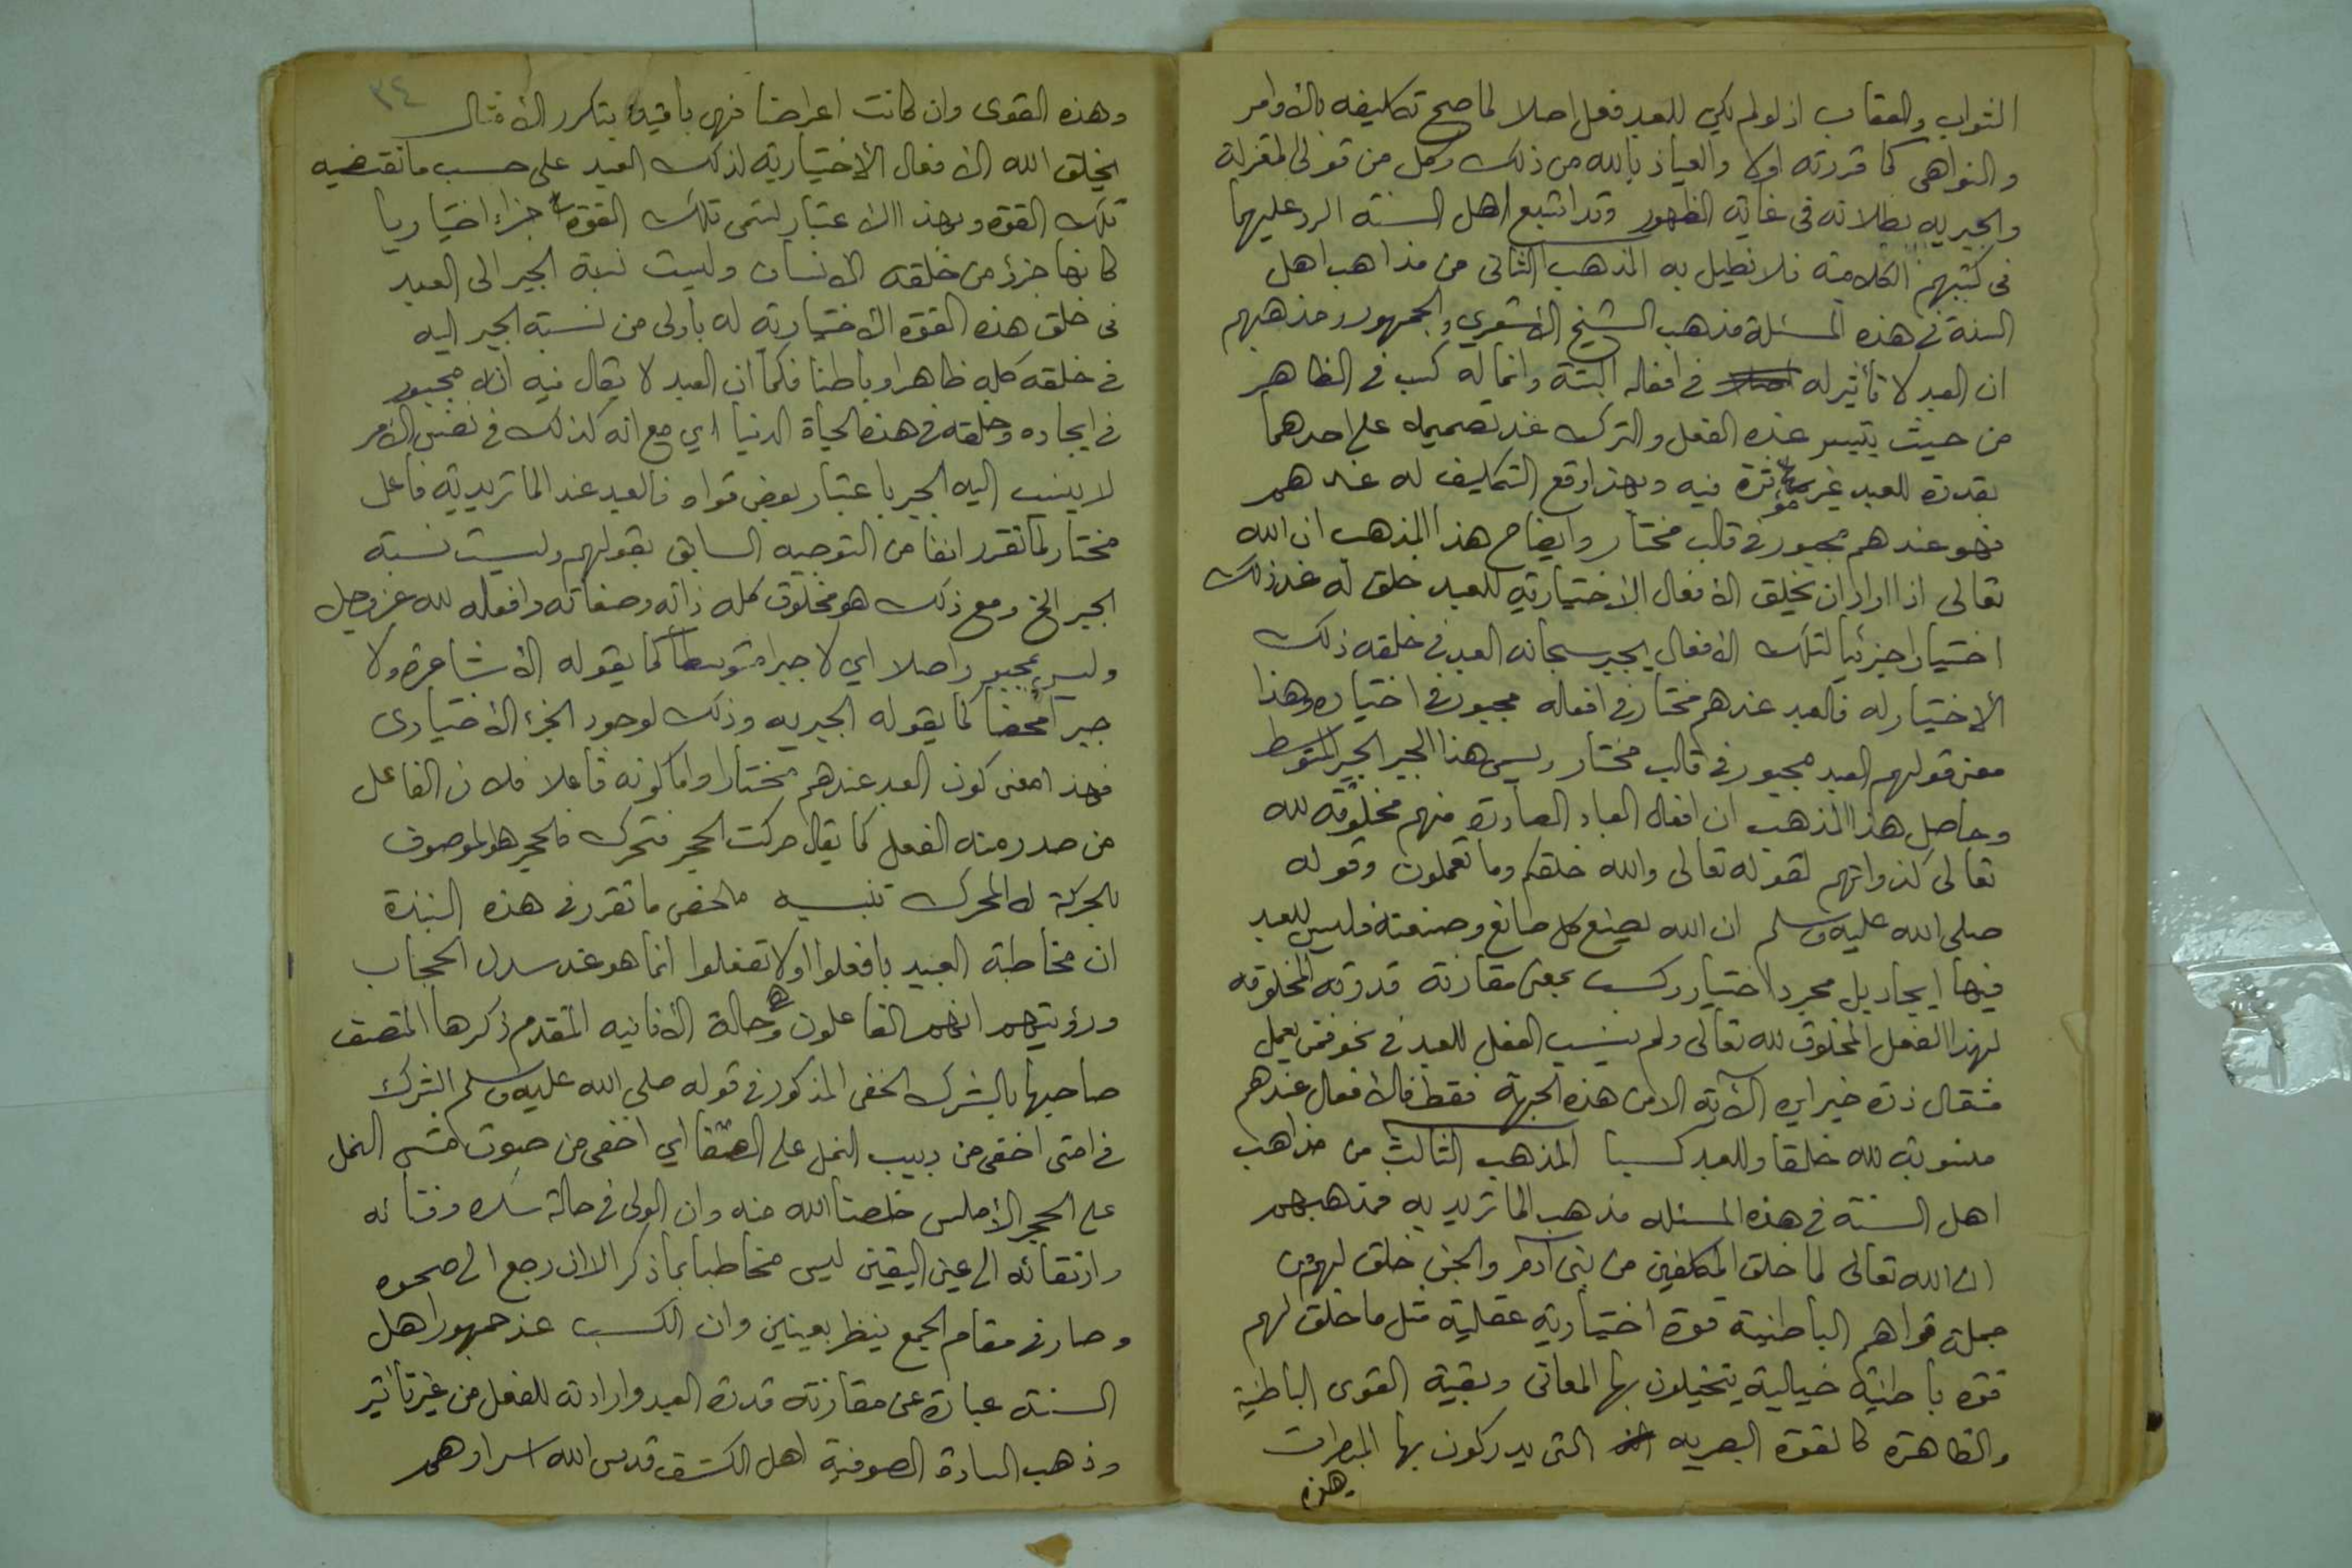 الثواب والعقاب اذ لو لم يكن للعبد فعل اصلا لما صح تكليفه بالأوامر
والنواهي كما قررته اولا والعياذ بالله من ذلك وكل من قولى المعتزلة
والجبريه بطلانه في غاية الظهور وقد اشبع اهل السنة الرد عليهما
في كتبهم الكلامية فلا نطيل به المذهب الثانى من مذاهب اهل
السنة في هذه المسئلة مذهب الشيخ الأشعري والجمهور ومذهبهم
ان العبد لا تأثير له في افعاله البتة وانما له كسب في الظاهر
من حيث يتيسر عنده الفعل والترك عند تصميمه على احدهما
بقدرة للعبد غير مؤثرة فيه وبهذا وقع التكليف له عندهم
فهو عندهم مجبور في قالب مختار وايضاح هذا المذهب ان الله
تعالى اذا اراد ان يخلق الأفعال الاختيارية للعبد خلق له عند ذلك
اختيارا جزئيا لتلك الأفعال يجبر سبحانه العبد في خلقه ذلك
الأختيار له فالعبد عندهم مختار في افعاله مجبور في اختياره وهذا
معنى قولهم العبد مجبور في قالب مختار ويسمى هذا الجبر الجبر المتوسط
وحاصل هذا المذهب ان افعال العباد الصادرة منهم مخلوقة لله
تعالى كذواتهم لقوله تعالى والله خلقكم وما تعملون وقوله
صلى الله عليه وسلم ان الله يصنع كل صانع وصنعته فليس للعبد
فيها ايجاد بل مجرد اختيار وكسب بمعنى مقارنة قدرته المخلوقه
لهذا الفعل المخلوق لله تعالى ولم ينسب الفعل للعبد في نحو فمن يعمل
مثقال ذرة خيرا يره الآية الا من هذه الجهة فقط فالأفعال عندهم
منسوبة لله خلقا وللعبد كسبا المذهب الثالث من مذاهب
اهل السنة في هذه المسئله مذهب الماتريديه فمذهبهم
ان الله تعالى لما خلق المكلفين من بنى آدم والجن خلق لهم من
جملة قواهم الباطنية قوة اختيارية عقلية مثل ما خلق لهم
قوة باطنية خيالية يتخيلون بها المعانى وبقية القوى الباطنية
والظاهرة كالقوة البصريه التى يدركون بها المبصرات
وهذه
٣٤
وهذه القوى وان كانت اعراضا فهى باقية بتكرر الأمثال
يخلق الله الأفعال الأختيارية لذلك العبد على حسب ما تقتضيه
تلك القوة وبهذا الاعتبار تسمى تلك القوة جزاء اختياريا
كانها جزؤ من خلقه الأنسان وليست نسبة الجبر الى العبد
في خلق هذه القوة الأختيارية له بأولى من نسبة الجبر اليه
في خلقه كله ظاهرا وباطنا فكما ان العبد لا يقال فيه انه مجبور
في ايجاده وخلقه في هذه الحياة الدنيا اي مع انه كذلك في نفس الأمر
لا ينسب اليه الجبر باعتبار بعض قواه فالعبد عند الماتريدية فاعل
مختار لما تقرر انفا من التوجيه السابق بقولهم وليست نسبة
الجبر الخ ومع ذلك هو مخلوق كله ذاته وصفاته وافعاله لله عز وجل
وليس بمجبور اصلا اي لا جبرا متوسطا كما يقوله الأشاعرة ولا
جبرا محضا كما يقوله الجبريه وذلك لوجود الجزء الأختيارى
فهذا معنى كون العبد عندهم مختارا واما كونه فاعلا فلان الفاعل
من صدر منه الفعل كما يقال حركت الحجر فتحرك فالحجر هو الموصوف
بالحركة لا المحرك تنبيه ملخص ما تقرر في هذه النبذة
ان مخاطبة العبيد بافعلوا اولا تفعلوا انما هو عند سدل الحجاب
ورؤيتهم انهم الفاعلون وهي حالة الأنانيه المتقدم ذكرها المتصف
صاحبها بالشرك الخفى المذكور في قوله صلى الله عليه وسلم الشرك
في امتى اخفى من دبيب النمل على الصفا اي اخفى من صوت مشى النمل
على الحجر الأملس خلصنا الله منه وان الولى في حالة سكره وفنائه
وارتقائه الى عين اليقين ليس مخاطبا بما ذكر الا ان رجع الى صحوه
وصار في مقام الجمع ينظر بعينين وان الكسب عند جمهور اهل
السنة عبارة عن مقارنة قدرة العبد وارادته للفعل من غير تأثير
وذهب السادة الصوفية اهل الكشف قدس الله اسرارهم